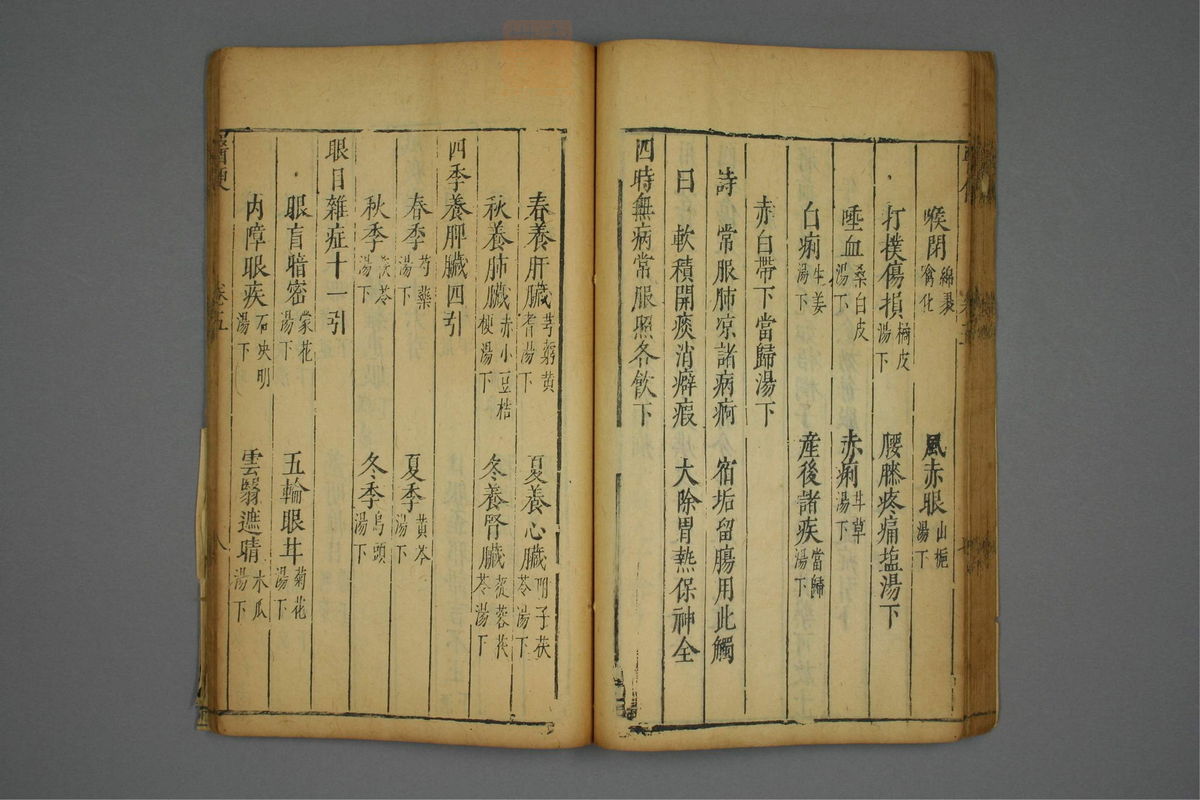 喉閉綿裹噙化 風赤眼山梔湯下
打撲傷損橘皮湯下 腰膝疼痛塩湯下
唾血桑白皮湯下 赤痢甘草湯下
白痢生姜湯下 産後諸疾當歸湯下
赤白帶下當歸湯下
詩 常服肺凉諸病痾 宿垢留腸用此觸
曰 軟積開痰消癖瘕 大除胃熱保神全
四時無病常服照各飲下
春養肝臓芎藭黄耆湯下 夏養心臓明子茯苓湯下
秋養肺臓赤小豆桔梗湯下 冬養腎臓蓯蓉茯苓湯下
四季養脾臓四引
春季芍藥湯下 夏季黄芩湯下
秋季茯苓湯下 冬季烏頭湯下
眼目雜症十一引
眼盲暗密蒙花湯下 五輪眼廾菊花湯下
内障眼疾石决明湯下 雲翳遮睛木瓜湯下
卷五
八